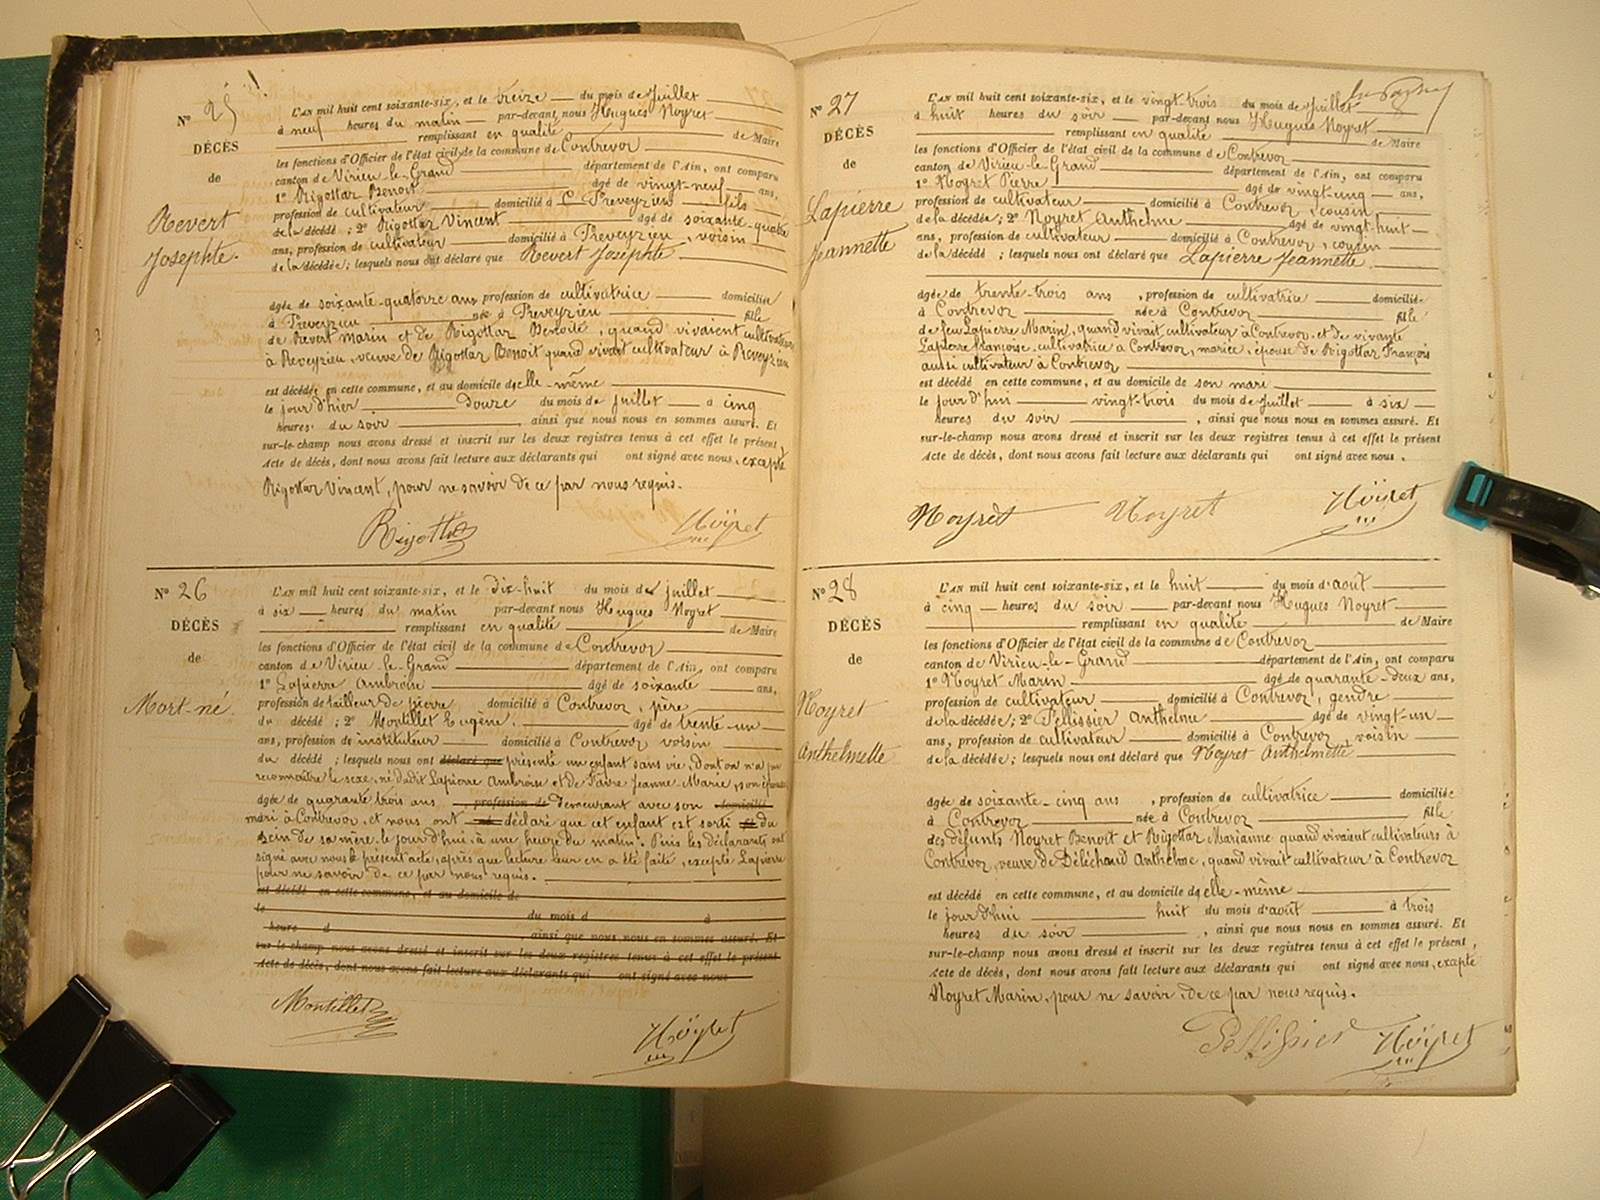 N° 25
DÉCÈS
de
Revert
Josephte.
L'AN mil huit cent soixante-six, et le treize du mois de Juillet
à neuf heures du matin par-devant nous Hugues Noyret
remplissant en qualité de Maire
les fonctions d'Officier de l'état civil de la commune de Contrevoz
canton de Virieu-le-Grand département de l'Ain, ont comparu
1° Rigottaz Benoit âgé de vingt-neuf ans,
profession de cultivateur domicilié à Preveyzieu fils
de la décédé ; 2° Rigottaz Vincent âgé de soixante-quatre
ans, profession de cultivateur domicilié à Preveyzieu, voisin
de la décédé ; lesquels nous ont déclaré que Revert Josephte
âgée de soixante-quatorze ans profession de cultivatrice domiciliée
à Preveyzieu née à Preveyzieu fille
de Revert Marin et de Rigottaz Benoite, quand vivaient cultivateurs
à Preveyzieu, veuve de Rigottaz Benoit quand vivait cultivateur à Preveyzieu
est décédée en cette commune, et au domicile d'elle-même
le jour d'hier douze du mois de Juillet à cinq
heures du soir, ainsi que nous nous en sommes assuré. Et
sur-le-champ nous avons dressé et inscrit sur les deux registres tenus à cet effet le présent
Acte de décès, dont nous avons fait lecture aux déclarants qui ont signé avec nous, excepté
Rigottaz Vincent, pour ne savoir de ce par nous requis.
Rigottaz Noÿret
N° 26
DÉCÈS
de
Mort-né.
L'AN mil huit cent soixante-six, et le dix-huit du mois de juillet
à six heures du matin par-devant nous Hugues Noyret
remplissant en qualité de Maire
les fonctions d'Officier de l'état civil de la commune de Contrevoz
canton de Virieu-le-Grand département de l'Ain, ont comparu
1° Lapierre Ambroise âgé de soixante ans,
profession de tailleur de pierre domicilié à Contrevoz, père
du décédé ; 2° Montillet Eugène, âgé de trente-un
ans, profession de instituteur domicilié à Contrevoz voisin
du décédé ; lesquels nous ont déclaré que présenté un enfant sans vie, dont on n'a pu
reconnaître le sexe, né dudit Lapierre Ambroise et de Favre Jeanne Marie, son épouse
âgée de quarante trois ans, profession de demeurant avec son domicilié
mari à Contrevoz, et nous ont né déclaré que cet enfant est sorti du
sein de sa mère le jour d'hui à une heure du matin. Puis les déclarants ont
signé avec nous le présent acte, après que lecture leur en a été faite, excepté Lapierre
pour ne savoir de ce par nous requis.
est décédé en cette commune, et au domicile de
le du mois d à
heure d ainsi que nous nous en sommes assuré. Et
sur-le-champ nous avons dressé et inscrit sur les deux registres tenus à cet effet le présent
Acte de décès, dont nous avons fait lecture aux déclarants qui ont signé avec nous
Montillet Noÿret
N° 27
DÉCÈS
de
Lapierre
Jeannette
L'AN mil huit cent soixante-six, et le vingt-trois du mois de Juillet
à huit heures du soir par-devant nous Hugues Noyret
remplissant en qualité de Maire
les fonctions d'Officier de l'état civil de la commune de Contrevoz
canton de Virieu-le-Grand département de l'Ain, ont comparu
1° Noyret Pierre âgé de vingt-cinq ans,
profession de cultivateur domicilié à Contrevoz, cousin
de la décédée ; 2° Noyret Anthelme âgé de vingt-huit
ans, profession de cultivateur domicilié à Contrevoz, cousin
de la décédé ; lesquels nous ont déclaré que Lapierre Jeannette
âgée de trente-trois ans, profession de cultivatrice domiciliée
à Contrevoz née à Contrevoz fille
de feu Lapierre Marin, quand vivait cultivateur à Contrevoz, et de vivante
Lapierre françoise, cultivatrice à Contrevoz, mariée, épouse de Rigottaz François
aussi cultivateur à Contrevoz
est décédé en cette commune, et au domicile de son mari
le jour d'hui vingt-trois du mois de Juillet à six
heures du soir, ainsi que nous nous en sommes assuré. Et
sur-le-champ nous avons dressé et inscrit sur les deux registres tenus à cet effet le présent
Acte de décès, dont nous avons fait lecture aux déclarants qui ont signé avec nous.
Noyret Noyret Noÿret
N° 28
DÉCÈS
de
Noyret
Anthelmette
L'AN mil huit cent soixante-six, et le huit du mois d'août
à cinq heures du soir par-devant nous Hugues Noyret
remplissant en qualité de Maire
les fonctions d'Officier de l'état civil de la commune de Contrevoz
canton de Virieu-le-Grand département de l'Ain, ont comparu
1° Noyret Marin âgé de quarante-deux ans,
profession de cultivateur domicilié à Contrevoz, gendre
de la décédée ; 2° Pellissier Anthelme âgé de vingt-un
ans, profession de cultivateur domicilié à Contrevoz, voisin
de la décédée ; lesquels nous ont déclaré que Noyret Anthelmette
âgée de soixante-cinq ans, profession de cultivatrice domiciliée
à Contrevoz née à Contrevoz fille
des défunts Noyret Benoit et Rigottaz Marianne quand vivaient cultivateurs à
Contrevoz, veuve de Déléchaud Anthelme, quand vivait cultivateur à Contrevoz
est décédé en cette commune, et au domicile d'elle-même
le jour d'hui huit du mois d'août à trois
heures du soir, ainsi que nous nous en sommes assuré. Et
sur-le-champ nous avons dressé et inscrit sur les deux registres tenus à cet effet le présent,
Acte de décès, dont nous avons fait lecture aux déclarants qui ont signé avec nous, excepté
Noyret Marin, pour ne savoir, de ce par nous requis.
Pellissier Noÿret